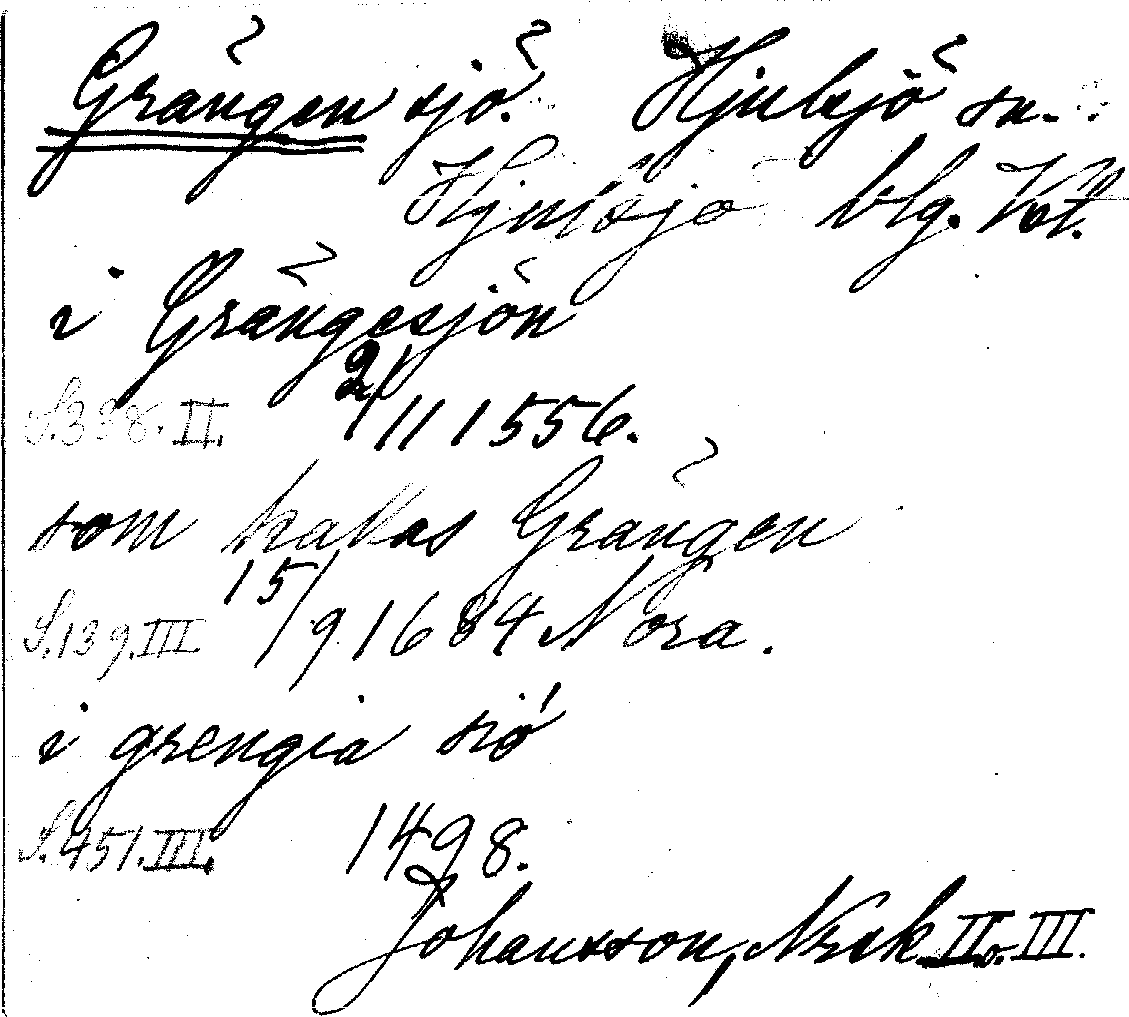 Grängen sjö. Hjulsjö sn.
Hjulsjö blg. Vst.
i Grängesjön
S.338.II. 2/11 1556.
som kallas Grängen
S.139.III 15/9 1684 Nora.
i grengia sió
S.451.III. 1498.
Johansson, Norak II o. III.